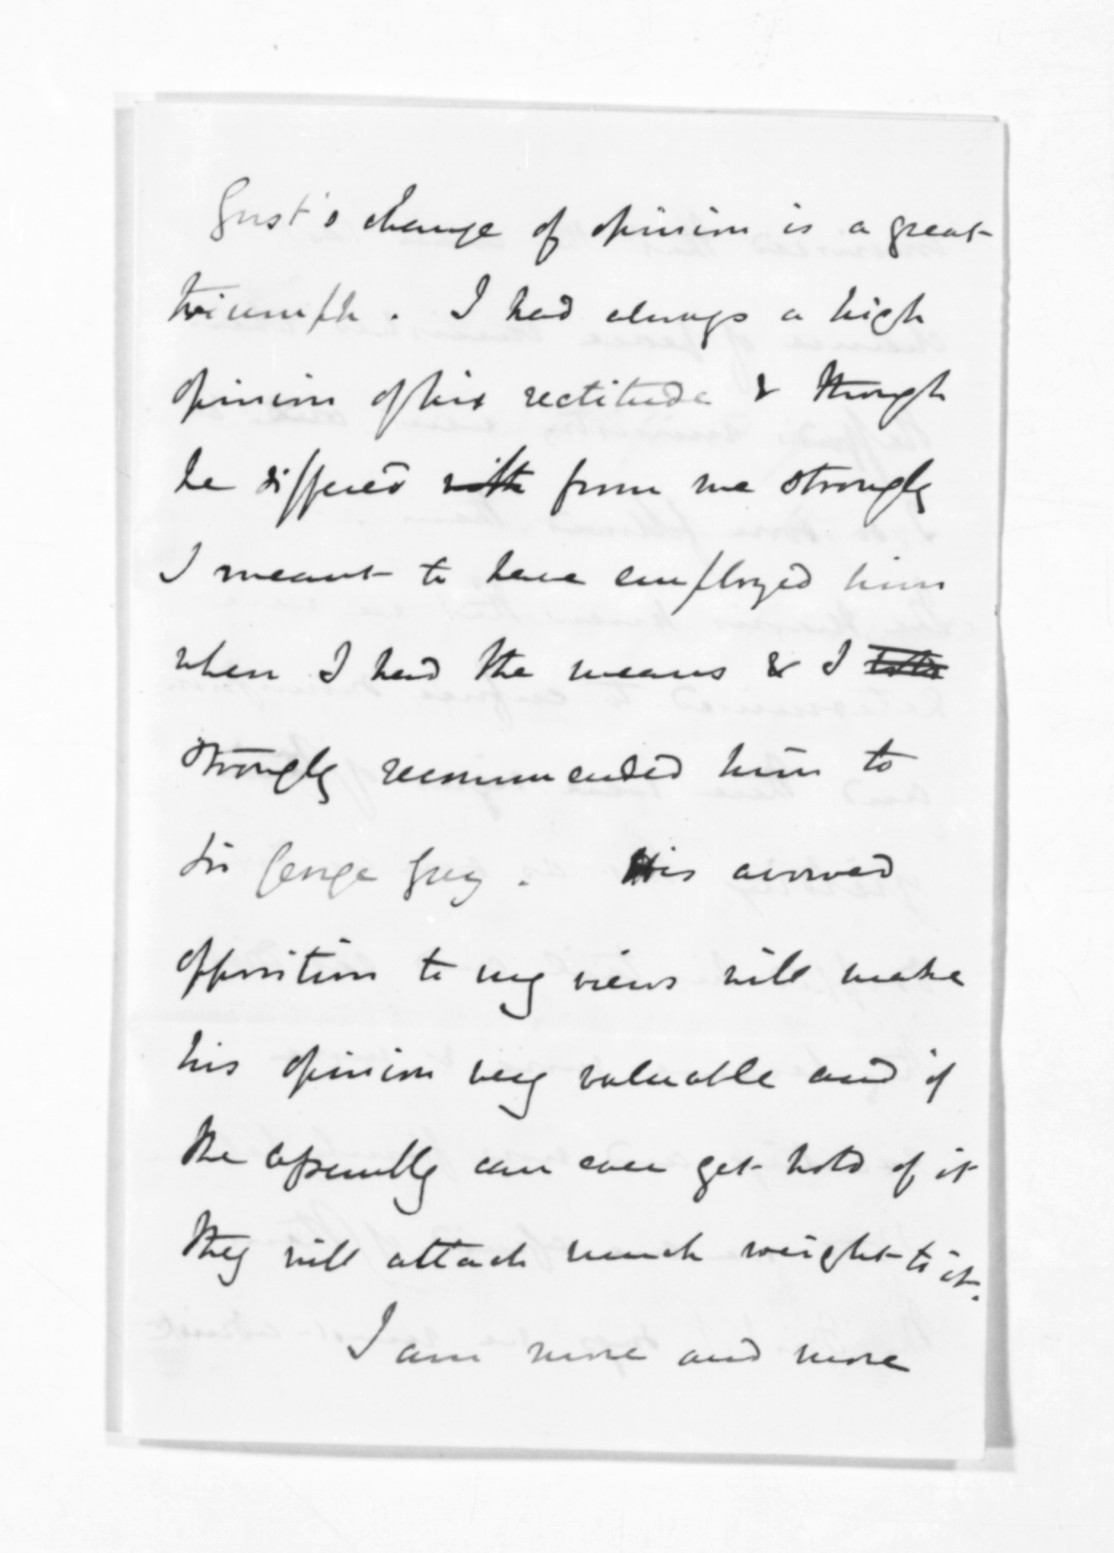 Gust's change of opinion is a great
triumph. I had always a high
opinion of his rectitude & though
he differed with from me strongly
I meant to have employed him
when I had the means & I
strongly recommended him to
Sir George Grey. His avowed
opposition to my views will make
his opinion very valuable and if
the assembly can ever get hold of it
they will attach much weight to it.
I am more and more